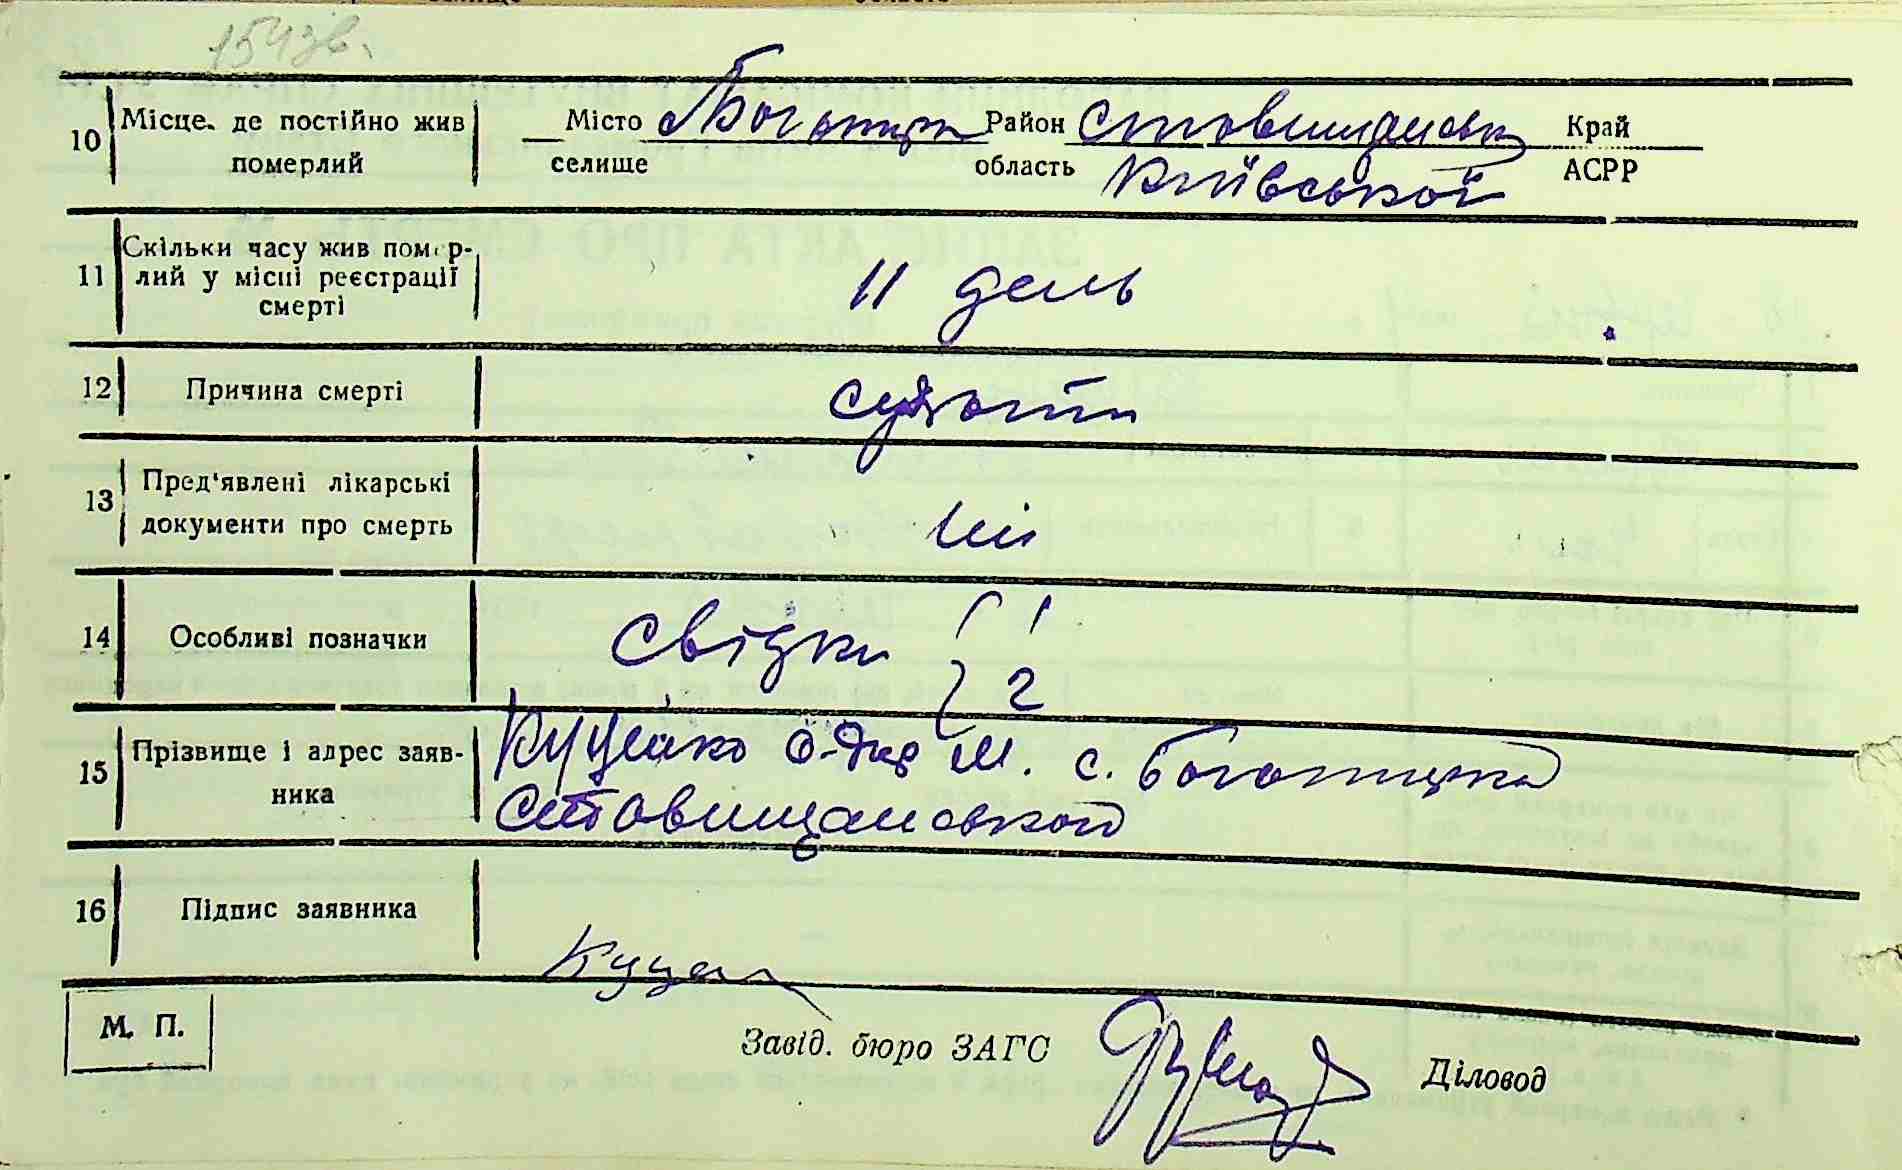 154зв.
10 Місце. де постійно жив померлий
Місто селище Богатирка Район область Ставищанськ Київської Край АСРР
11 Скільки часу жив помер-
лий у місці реєстрації
смерті
11 день
12 Причина смерті
13 Пред'явлені лікарські
документи про смерть
ні
14 Особливі позначки
Свідки 1
2
15 Прізвище і адрес заяв-
ника
М. с. Богатирка
Ставищанської
16 Підпис заявника
М. П.
Завід. бюро ЗАГС
Діловод